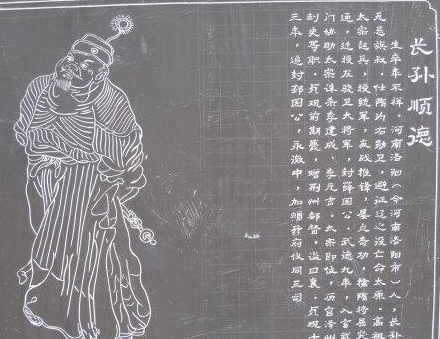 长孙顺德
生卒年不详，河南洛阳（今河南洛阳市）人，长孙
无忌族叔。仕隋为右勋卫，避征辽之役亡命太原。高祖
太宗起兵，授统军，战，屡立奇功，擒隋将屈突
通，迁授左骁卫大将军，封薛国公。武德九年，入玄武
门协助太宗诛杀李建成、李元吉。太宗即位，历官泽州
刺史等职。贞观前期薨，赠荆州都督，谥曰襄。贞观十
三年，追封邳国公，永徽中，加赠开府仪同三司